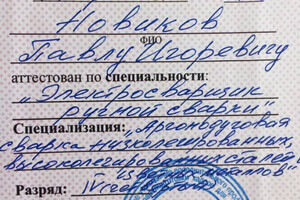 Новиков
ФИО
Павлу Игоревичу
аттестован по специальности:
„Электросварщик
ручной сварки"
Специализация: „Аргонодуговая
сварка низколегированных,
высоколегированных сталей
металлов"
Разряд: IV (четвертый)